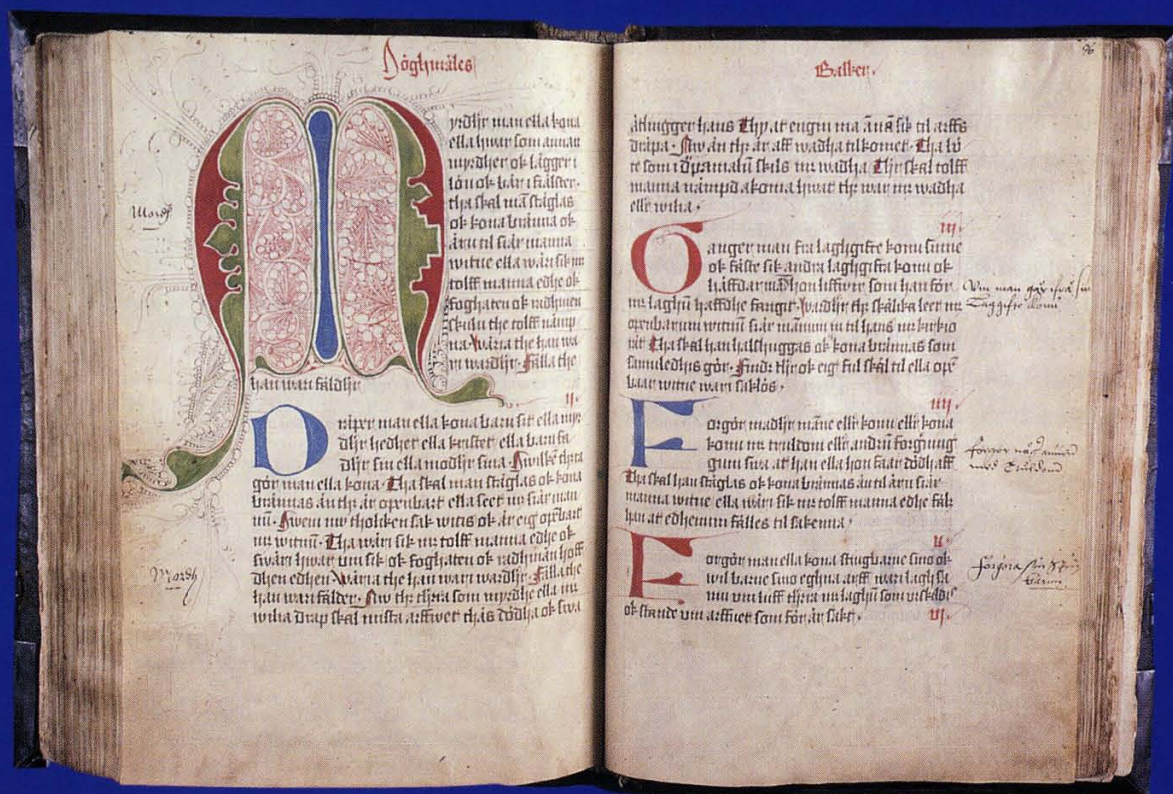 Höghmäles
Myrdhir man ella kona
ella hwar som annan
myrdher ok lägger i
lön ok bär i fiälster
tha skal man stäglas
ok kona bränna ok
äru til siäx manna
witne ella wäri sik mz
tolff manna edhe ok
foghaten ok radhmen
skulu the tolff nämp
na Wäria the han wa
ri wardhir Fälla the
han wari fäldhir
ij.
Dräper man ella kona barn sit ella myr
dhir hedhet ella kristet ella barn fa
dhir sin ella modhir sina hwilkit thera
gör man ella kona Tha skal man stäglas ok kona
brännas än thz är openbart ella leet mz siäx man
num witnum Tha wäri sik mz tolff manna edhe ok
swäri hwar um sik ok foghaten ok radhman
dhen edhen Wäria the han wari wardhir Fälla the
han wari fälder Nw the thera som myrdhe ella mz
wilia drap skal mista arffwet thäs dödha ok swa
Mordh
Mordh
Balker.
96
äthugger hans Thy at engin ma änan sik til arffs
dräpa Nw än thz är aff wadha tilkomet Tha bö
te som i dräpamalum skils mz wadha Thz skal tolff
manna nämpd akoma hwat thz war mz wadha
elle wilia
iij.
Ganger man fra laghgifte konu sinne
ok fäste sik andra laghgifta konu ok
häffdar madhon liffwir som han för
mz laghum haffdhe fangit Wardhir thz skälika leet mz
openbarum witnum siäx mannum in til hans mz kirkio
rät Tha skal han halshuggas ok kona brännas som
samuledhis gör Findz thz ok eig ful skäl til ella opē
baar witne wari saklös
iiij.
Forgör madhir mane elle konu elle kona
konu mz truldom elle andrum forgärning
gum swa at han ella hon faar dödh aff
Tha skal han stäglas ok kona brännas än til äru siäx
manna witne ella wäri sik mz tolff manna edhe fal
han at edhenum fälles til sakenna
v.
Forgör man ella kona stiugbarne sino ok
wil barne sino eghna arff wari lagh sa
mu um liff thera mz laghum som wskedis
ok stande um arffuet som för är sakt
vj.
Um man gar ifra sin
Laggifte konu
Förgör nogh annan
med Truldom
Förgöra sin Stiu
barnn